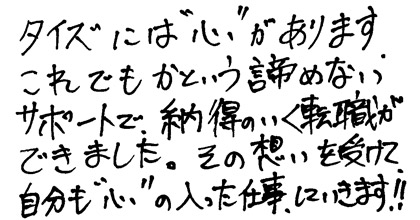 タイズには"心"があります.
これでもかという諦めない
サポートで、納得のいく転職が
できました。その想いを受けて、
自分も"心"の入った仕事、していきます!!